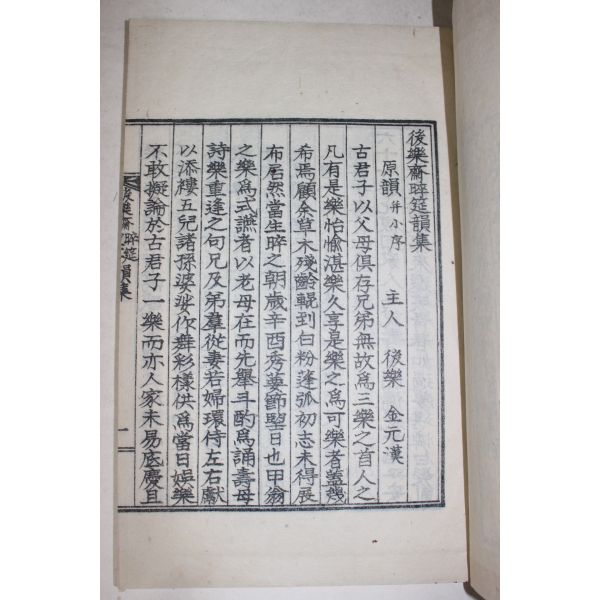 後樂齋晬筵韻集
原韻 幷小序 主人 後樂 金元漢
古君子以父母俱存兄弟無故爲三樂之首人之
凡有是樂怡愉湛樂久享是樂之爲可樂者蓋幾
希焉顧余草木殘齡輥到白粉蓬弧初志未得展
布居然當生晬之朝歲辛酉秀葽節望日也甲翁
之樂爲式讌者以老母在而先擧斗酌爲誦壽母
詩樂重逢之句兄及弟羣從妻若婦環侍左右獻
以添褸五兒諸孫婆娑你舞彩樣供爲當日娛樂
不敢擬論於古君子一樂而亦人家未易底慶且
後樂齋晬筵韻集
一